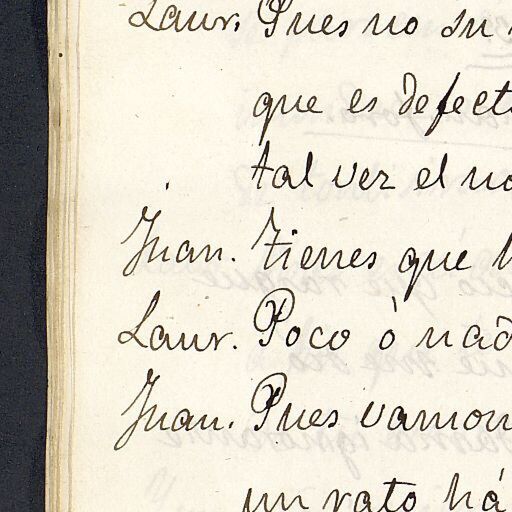 Laur. Pues no su
que es defect
tal vez el no
Juan. Tienes que
Laur. Poco ò nad
Juan. Pues vamon
un rato há